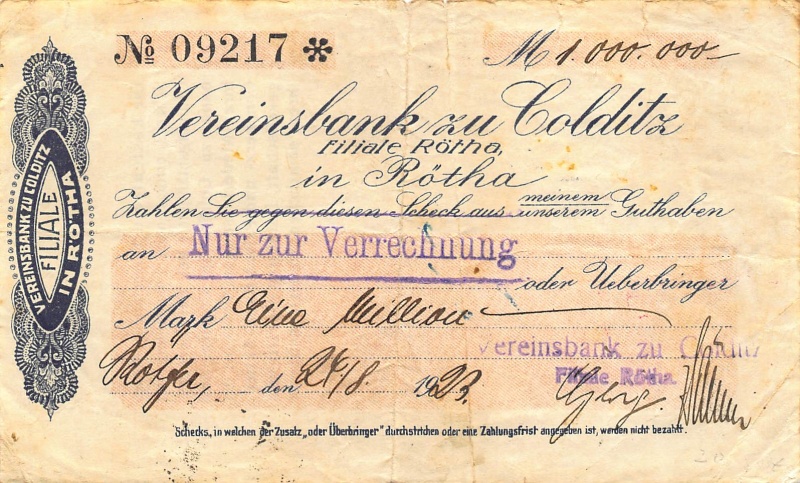 № 09217 *
M 1.000.000
Vereinsbank zu Colditz
Filiale Rötha,
in Rötha
Zahlen Sie gegen diesen Scheck aus meinem unserem Guthaben
an Nur zur Verrechnung
oder Ueberbringer
Mark Eine Million
Rötha, den 24/8. 1923.
Vereinsbank zu Colditz
Filiale Rötha.
Schecks, in welchen der Zusatz „oder Überbringer" durchstrichen oder eine Zahlungsfrist angegeben ist, werden nicht bezahlt.
VEREINSBANK ZU COLDITZ
FILIALE
IN RÖTHA